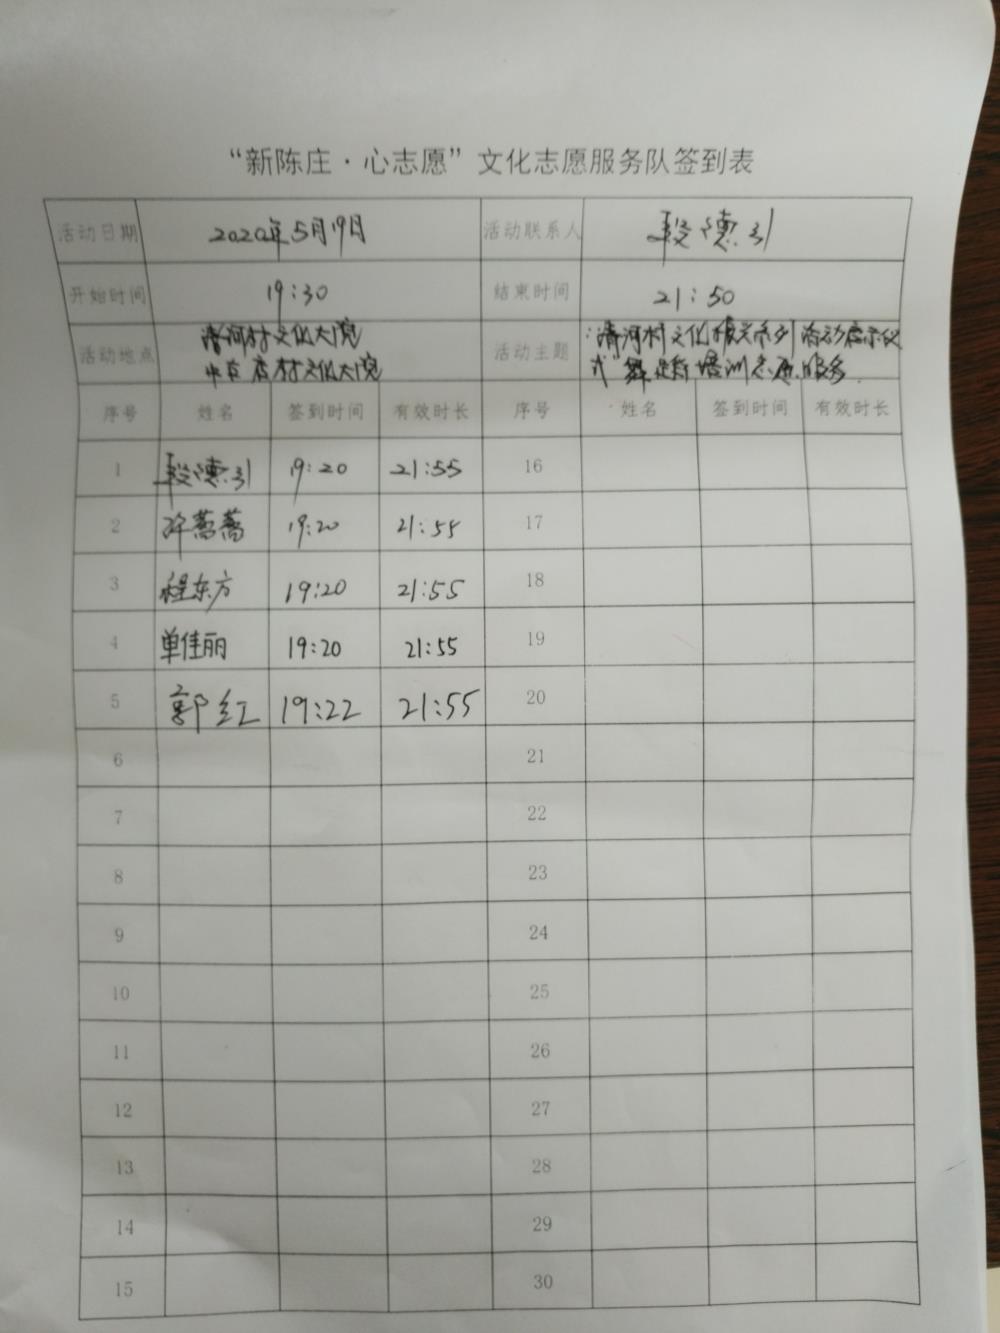 “新陈庄·心志愿”文化志愿服务队签到表
活动日期 2020年5月19日 活动联系人 段德引
开始时间 19:30 结束时间 21:50
活动地点 清河村文化大院 活动主题 清河村文化振兴系列活动启示仪
村文化大院 式 舞 培训志愿服务
序号 姓名 签到时间 有效时长 序号 姓名 签到时间 有效时长
1 段德引 19:20 21:55 16
2 许蒿蒿 19:20 21:55 17
3 程东方 19:20 21:55 18
4 单佳丽 19:20 21:55 19
5 郭红 19:22 21:55 20
6 21
7 22
8 23
9 24
10 25
11 26
12 27
13 28
14 29
15 30